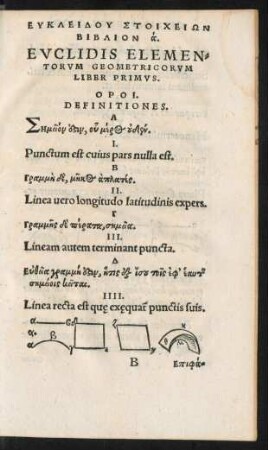 ΕΥΚΛΕΙΔΟΥ ΣΤΟΙΧΕΙΩΝ
ΒΙΒΛΙΟΝ ά.
EVCLIDIS ELEMEN-
TORVM GEOMETRICORVM
LIBER PRIMVS.
ΟΡΟΙ.
DEFINITIONES.
Α
Σημεῖόν ἐστιν, οὗ μέρος οὐδέν.
I.
Punctum est cuius pars nulla est.
Β
Γραμμὴ δὲ, μῆκος ἀπλατές.
II.
Linea uero longitudo latitudinis expers.
Γ
Γραμμῆς δὲ πέρατα, σημεῖα.
III.
Lineam autem terminant puncta.
Δ
Εὐθεῖα γραμμή ἐστιν, ἥτις ἐξ ἴσου τοῖς ἐφ' ἑαυτῆς
σημείοις κεῖται.
IIII.
Linea recta est quę exęquat punctis suis.
α
α
β
B
Επιφά-